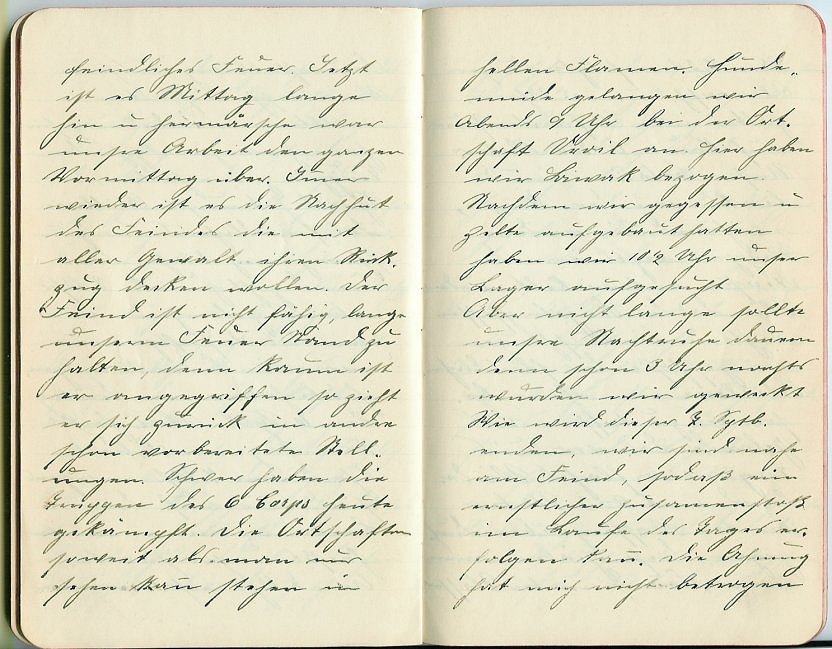 feindliches Feuer. Jetzt
ist es Mittag lange
hin u hermärsche war
unsre Arbeit den ganzen
Vormittag über. Imer
wieder ist es die Nachhut
des Feindes die mit
aller Gewalt ihren Rück-
zug decken wollen. Der
Feind ist nicht fähig, lange
unserm Feuer Stand zu
halten, denn kaum ist
er angegriffen so zieht
er sich zurück in andre
schon vorbereitete Stell-
ungen. Schwer haben die
Truppen des 6 Corps heute
gekämpft. Die Ortschaften
soweit als man nur
sehen kan stehen in
hellen Flamen. Hunde-
müde gelangen wir
Abends 9 Uhr bei der Ort-
schaft an. Hier haben
wir Biwak bezogen.
Nachdem wir gegessen u
Zelte aufgebaut hatten
haben wir 10½ Uhr unser
Lager aufgesucht
Aber nicht lange sollte
unsre Nachtruhe dauern
denn schon 3 Uhr nachts
wurden wir geweckt
Wie wird dieser 7. Sptb.
enden, wir sind nahe
am Feind, sodaß ein
ernstlicher Zusamenstoß
im Laufe des Tages er-
folgen kan. Die Ahnung
hat mich nicht betrogen